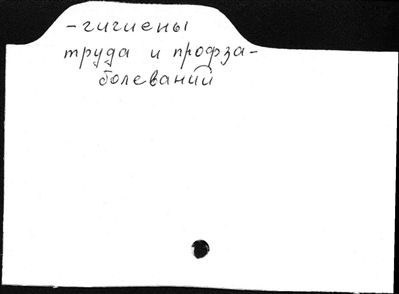 -гигиены
труда и профза-
болеваний